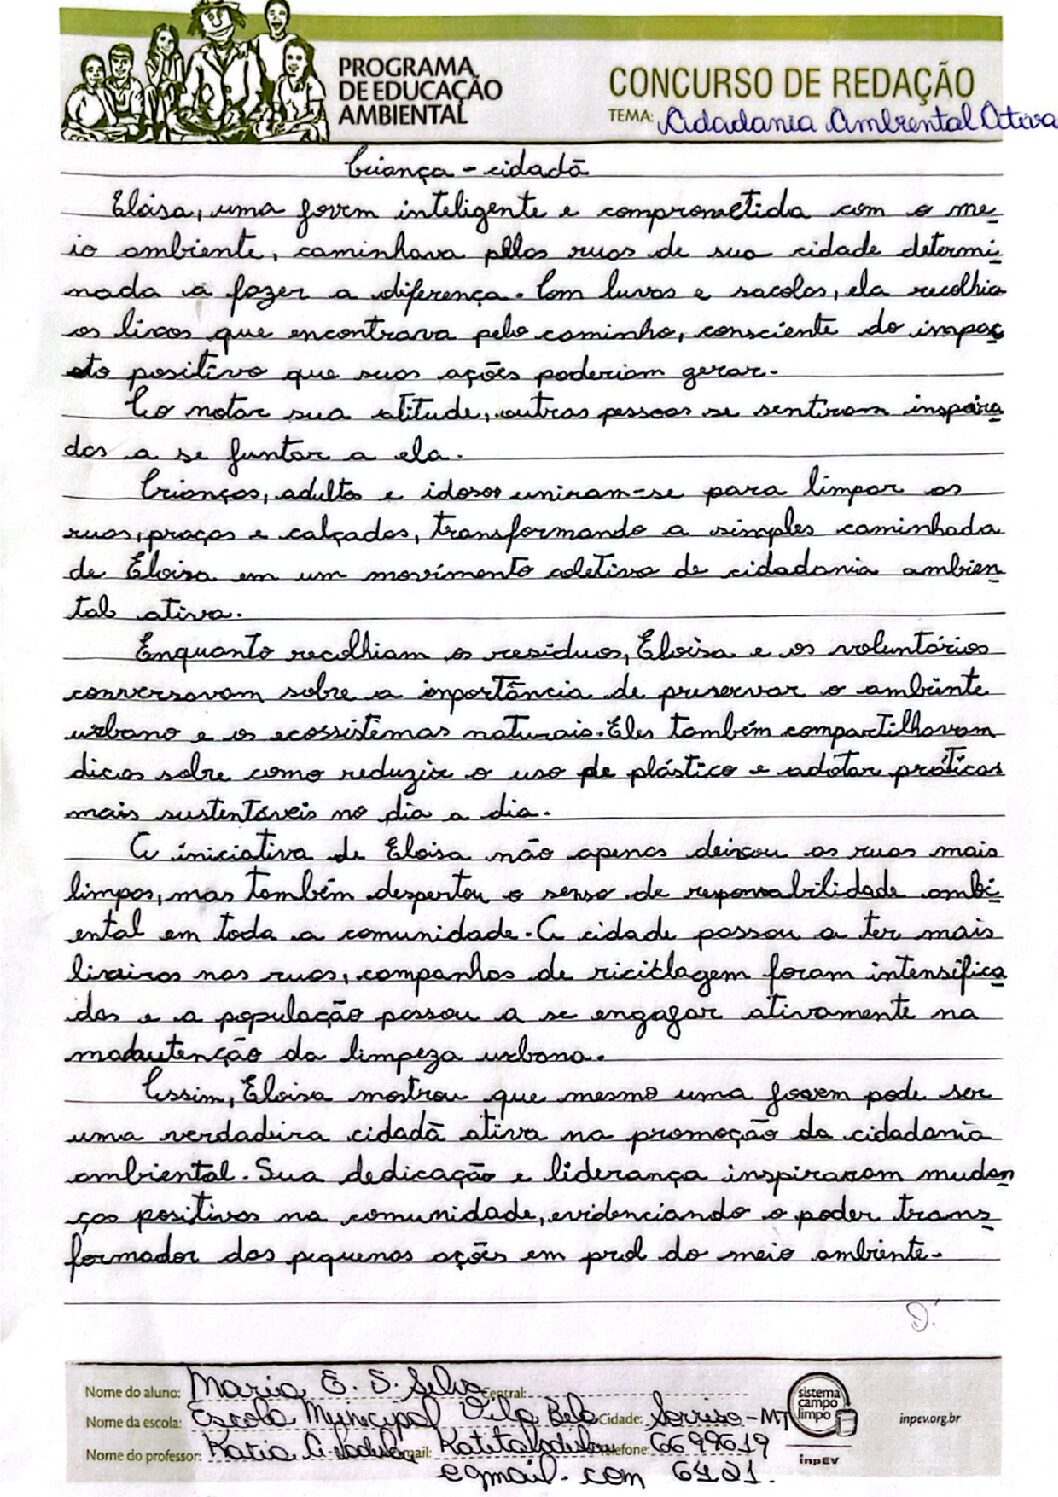 PROGRAMA
DE EDUCAÇÃO
AMBIENTAL
CONCURSO DE REDAÇÃO
TEMA: Cidadania Ambiental Ativa
Criança - cidadã
Eloisa, uma jovem inteligente e comprometida com o me
io ambiente, caminhava pelas ruas de sua cidade determi
nada a fazer a diferença. Com luvas e sacolas, ela recolhia
os lixos que encontrava pelo caminho, consciente do impac
to positivo que suas ações poderiam gerar.
Ao notar sua atitude, outras pessoas se sentiram inspira
das a se juntar a ela.
Crianças, adultos e idosos uniram-se para limpar as
ruas, praças e calçadas, transformando a simples caminhada
de Eloisa em um movimento coletivo de cidadania ambien
tal ativa.
Enquanto recolhiam os resíduos, Eloisa e os voluntários
conversavam sobre a importância de preservar o ambiente
urbano e os ecossistemas naturais. Eles também compartilhavam
dicas sobre como reduzir o uso de plástico e adotar práticas
mais sustentáveis no dia a dia.
A iniciativa de Eloisa não apenas deixou as ruas mais
limpas, mas também despertou o senso de responsabilidade ambi
ental em toda a comunidade. A cidade passou a ter mais
lixeiras nas ruas, campanhas de riciclagem foram intensifica
das e a população passou a se engajar ativamente na
manutenção da limpeza urbana.
Assim, Eloisa mostrou que mesmo uma jovem pode ser
uma verdadeira cidadã ativa na promoção da cidadania
ambiental. Sua dedicação e liderança inspiraram mudan
ças positivas na comunidade, evidenciando o poder trans
formador das pequenas ações em prol do meio ambiente.
Nome do aluno: Maria E. S. Silva Central:
Nome da escola: Escola Municipal Vila Bela Cidade: Sorriso - MT
Nome do professor: Katia email: Telefone: 6699619
@gmail.com 6421.
sistema
campo
limpo
inpEV
inpev.org.br